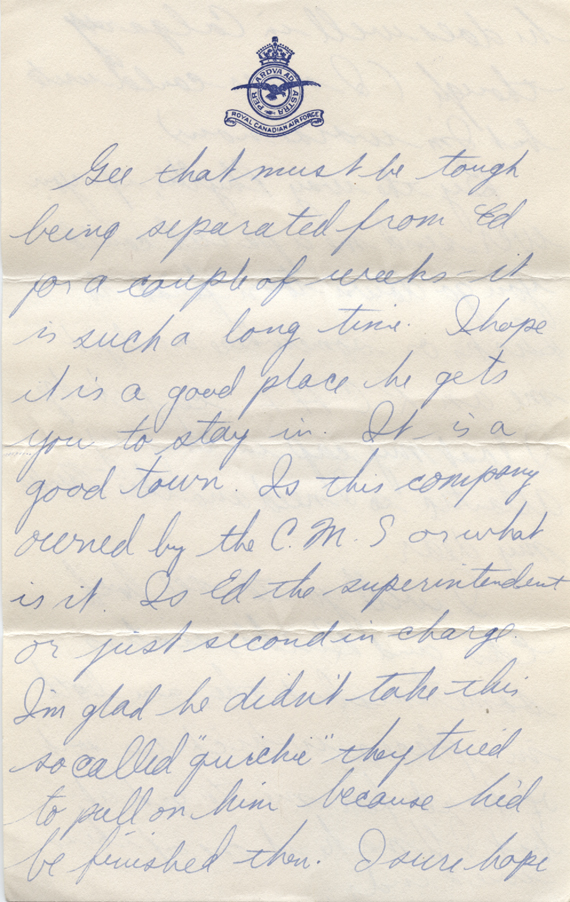 PER ARDVA AD ASTRA
ROYAL CANADIAN AIR FORCE
Gee that must be tough
being separated from Ed
for a couple of weeks - it
is such a long time. I hope
it is a good place he gets
you to stay in. It is a
good town. Is this company
owned by the C. M. S or what
is it. Is Ed the superintendent
or just second in charge.
I'm glad he didn't take this
so called "quickie" they tried
to pull on him because he'd
be finished then. I sure hope